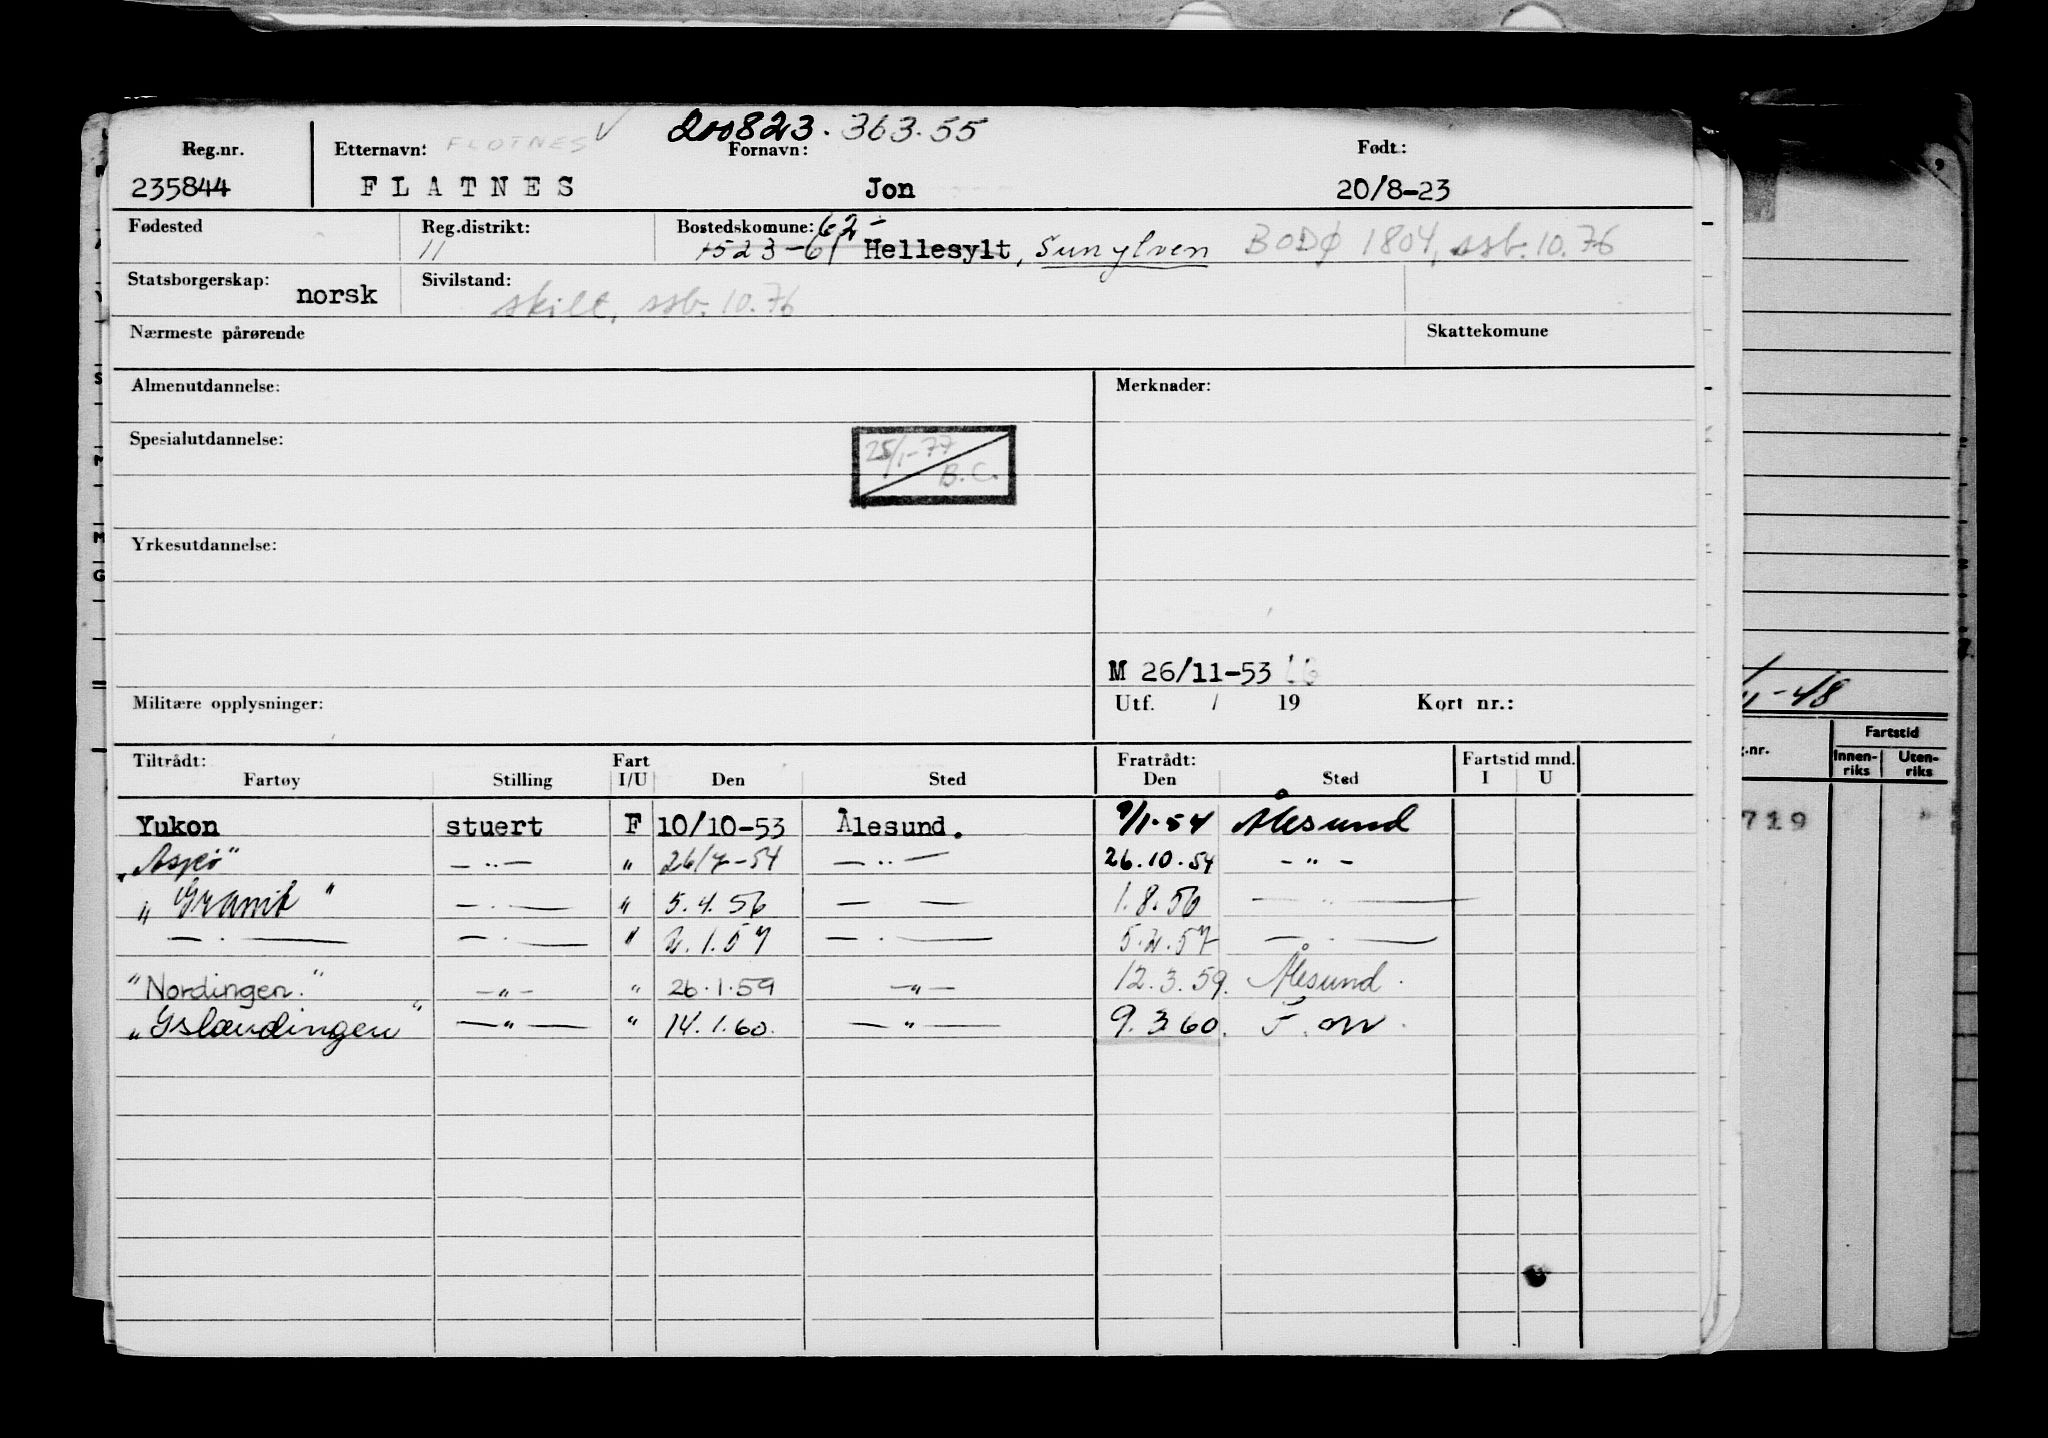 200823.363.55
Reg.nr. Etternavn: FLOTNES Fornavn: Født:
235844 FLATNES Jon 20/8-23
Fødested Reg.distrikt: Bostedskomune: 62-
11 1523-61 Hellesylt, Sunylven BODØ 1804, ssb. 10.76
Statsborgerskap: Sivilstand:
norsk skilt, ssb. 10.76
Nærmeste pårørende Skattekomune
Almenutdannelse: Merknader:
Spesialutdannelse:
25/1-77
B.C.
Yrkesutdannelse:
M 26/11-53
Militære opplysninger: Utf. / 19 Kort nr.:
Tiltrådt: Fart Fratrådt: Fartstid mnd.
Fartøy Stilling I/U Den Sted Den Sted I U
Yukon stuert F 10/10-53 Ålesund. 9/1-54 Ålesund
"Aspö" — " — " 26/7-54 — " — 26.10.54 - " -
"Granit" — . — " 5.4.56 — — 1.8.56 — " —
— . — — . — " 2.1.57 — . — 5.2.57 — . —
"Nordingen." — " — " 26.1.59 — " — 12.3.59. Ålesund.
"Islændingen" — " — " 14.1.60. — " — 9.3.60.
-48
.nr. Fartstid
Innen-riks Uten-riks
719